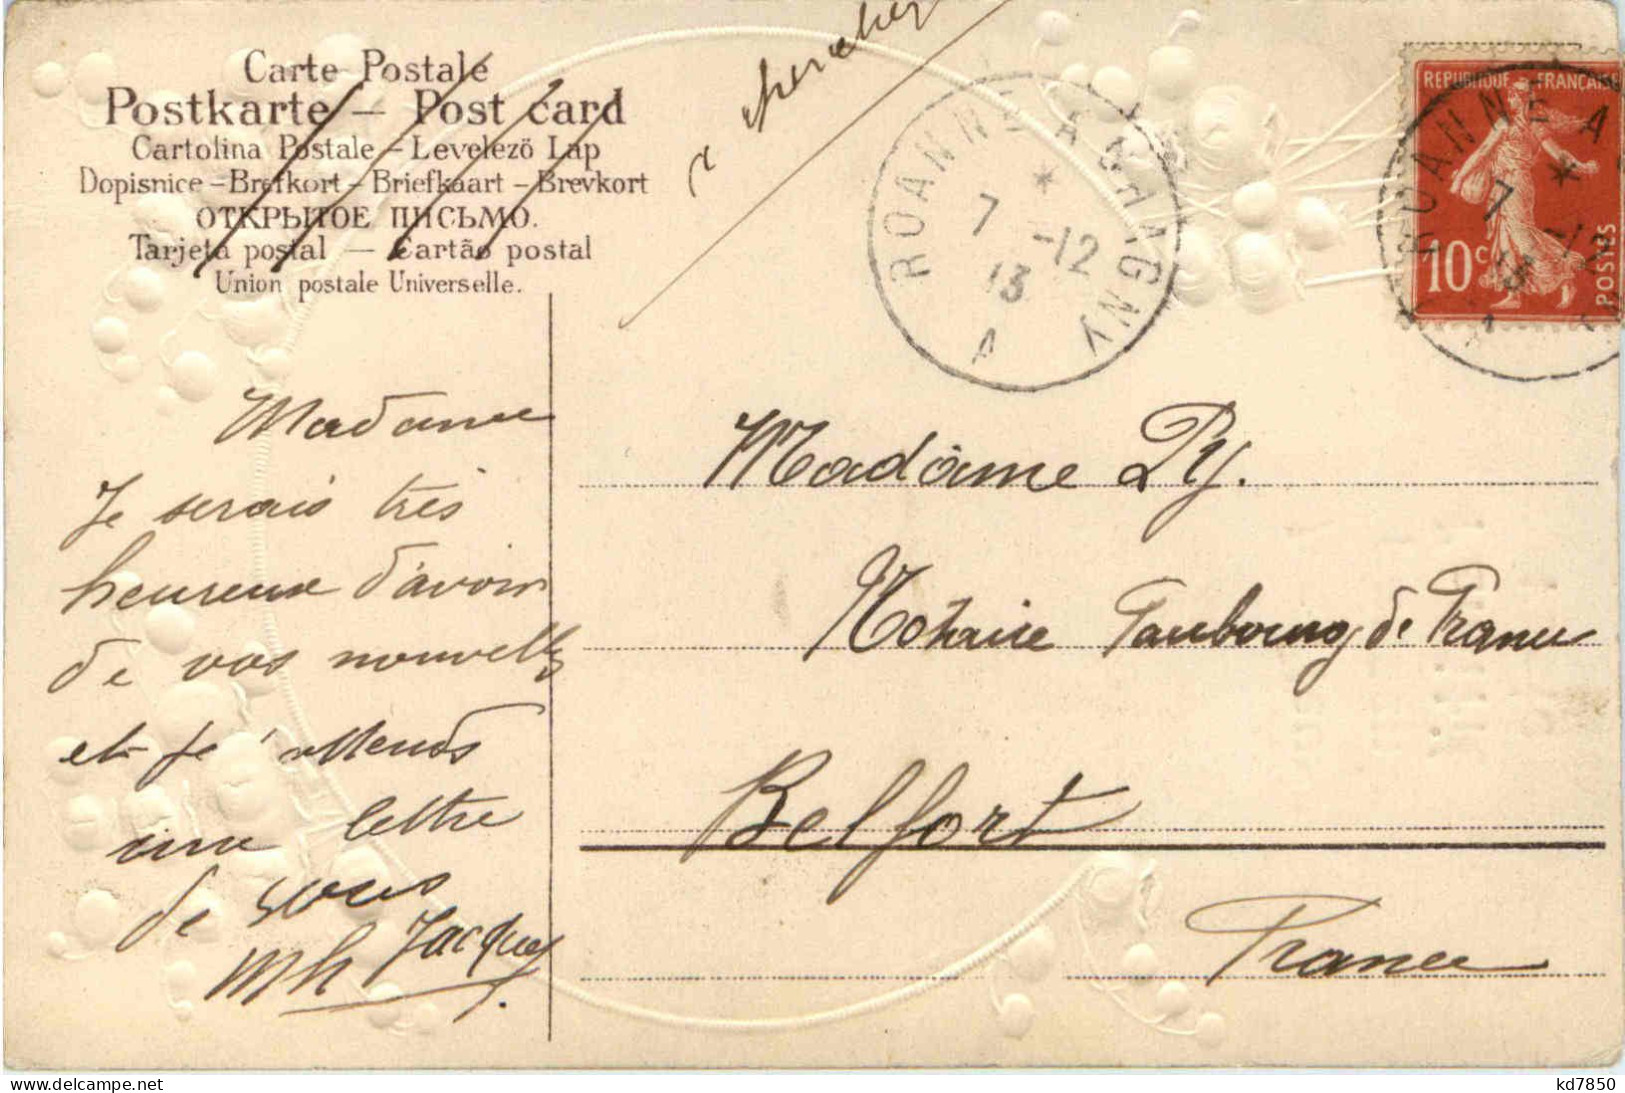 Carte Postale
Postkarte — Post card
Cartolina Postale – Levelezö Lap
Dopisnice – Brefkort – Briefkaart – Brevkort
ОТКРЫТОЕ ПИСЬМО.
Tarjeta postal — Cartão postal
Union postale Universelle.
ROANNE A CHAGNY
*
7 -12
13
A
REPUBLIQUE FRANÇAISE
10c
POSTES
ROANNE A
*
7 -12
13
Madame
Je serais très
heureux d'avoir
de vos nouvelles
et je attends
une lettre
de vous
Mh Jacques
Madame Py.
Notaire Faubourg de France
Belfort
France
kd7850